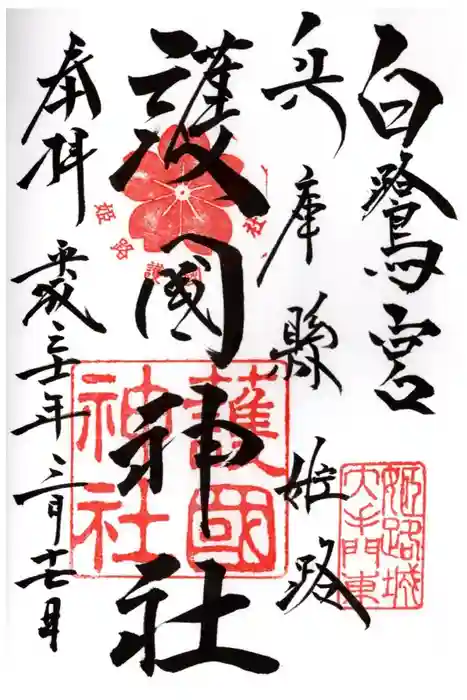 白鷺宮
兵庫縣姫路
護國神社
奉拝
平成三十一年三月十七日
姫路城
大手門東
護國
神社
姫路護
社